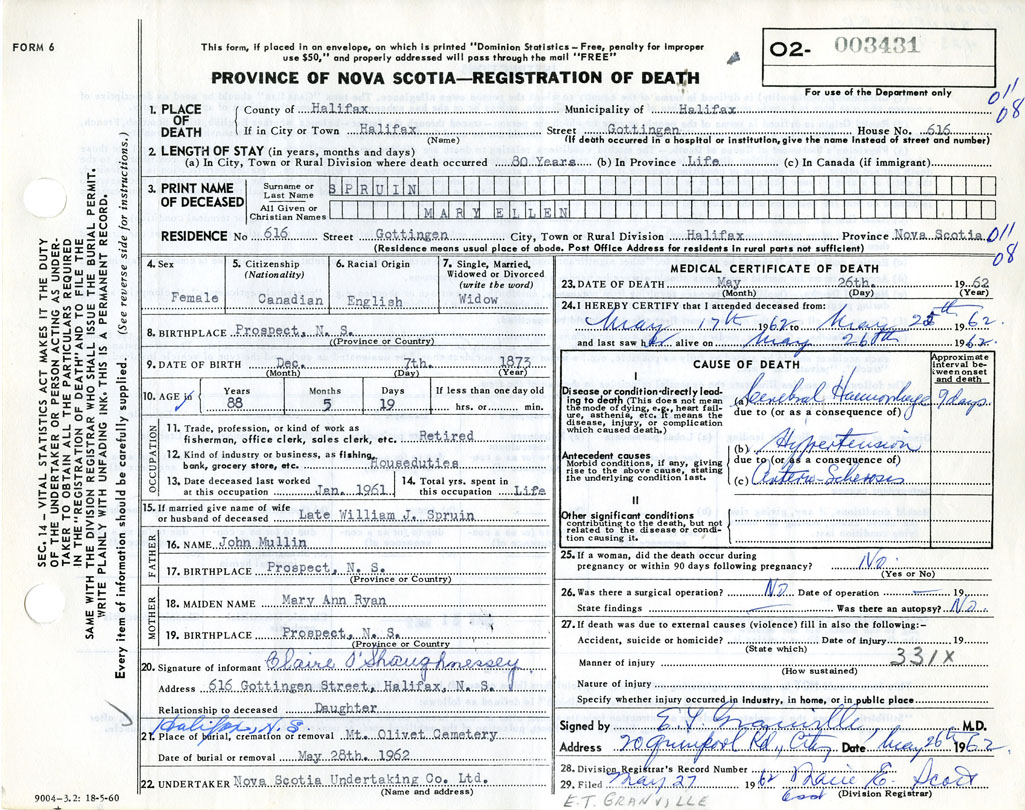 FORM 6
This form, if placed in an envelope, on which is printed "Dominion Statistics—Free, penalty for improper
use $50," and properly addressed will pass through the mail "FREE"
O2- 003431
For use of the Department only
PROVINCE OF NOVA SCOTIA—REGISTRATION OF DEATH
011
08
1. PLACE OF DEATH
County of Halifax Municipality of Halifax
If in City or Town Halifax Street Gottingen House No. 616
(Name) (If death occurred in a hospital or institution, give the name instead of street and number)
2. LENGTH OF STAY (in years, months and days)
(a) In City, Town or Rural Division where death occurred 80 Years (b) In Province Life (c) In Canada (if immigrant)
3. PRINT NAME OF DECEASED
Surname or Last Name SPRUIN
All Given or Christian Names MARY ELLEN
RESIDENCE No 616 Street Gottingen City, Town or Rural Division Halifax Province Nova Scotia
011
08
(Residence means usual place of abode. Post Office Address for residents in rural parts not sufficient)
4. Sex
Female
5. Citizenship
(Nationality)
Canadian
6. Racial Origin
English
7. Single, Married, Widowed or Divorced
(write the word)
Widow
8. BIRTHPLACE Prospect, N. S.
((Province or Country)
9. DATE OF BIRTH Dec. 7th. 1873
(Month) (Day) (Year)
10. AGE in
Years 88
Months 5
Days 19
If less than one day old
hrs. or min.
OCCUPATION
11. Trade, profession, or kind of work as
fisherman, office clerk, sales clerk, etc. Retired
12. Kind of industry or business, as fishing,
bank, grocery store, etc. Houseduties
13. Date deceased last worked
at this occupation Jan. 1961
14. Total yrs. spent in
this occupation Life
15. If married give name of wife
or husband of deceased Late William J. Spruin
FATHER
16. NAME John Mullin
17. BIRTHPLACE Prospect, N. S.
(Province or Country)
MOTHER
18. MAIDEN NAME Mary Ann Ryan
19. BIRTHPLACE Prospect, N. S.
(Province or Country)
20. Signature of informant Claire O'Shaughnessey
Address 616 Gottingen Street, Halifax, N. S.
Relationship to deceased Daughter
Halifax, N.S.
21. Place of burial, cremation or removal Mt. Olivet Cemetery
Date of burial or removal May 28th. 1962
22. UNDERTAKER Nova Scotia Undertaking Co. Ltd.
(Name and address)
MEDICAL CERTIFICATE OF DEATH
23. DATE OF DEATH May 26th. 1962
(Month) (Day) (Year)
24. I HEREBY CERTIFY that I attended deceased from:
May 17th 1962 to May 26th 1962
and last saw her alive on May 26th 1962
CAUSE OF DEATH
Approximate interval between onset and death
I
Disease or condition directly leading to death (This does not mean the mode of dying, e.g., heart failure, asthenia, etc. It means the disease, injury, or complication which caused death.)
(a) Cerebral Haemorrhage 9 days
due to (or as a consequence of)
Antecedent causes
Morbid conditions, if any, giving rise to the above cause, stating the underlying condition last.
(b) Hypertension
due to (or as a consequence of)
(c)
II
Other significant conditions
contributing to the death, but not related to the disease or condition causing it.
25. If a woman, did the death occur during
pregnancy or within 90 days following pregnancy? No.
(Yes or No)
26. Was there a surgical operation? No Date of operation — 19
State findings — Was there an autopsy? No.
27. If death was due to external causes (violence) fill in also the following:-
Accident, suicide or homicide? Date of injury 19
(State which)
Manner of injury 331X
(How sustained)
Nature of injury
Specify whether injury occurred in industry, in home, or in public place
Signed by E. T. Granville M.D.
Address 20 Quinpool Rd., City Date May 26th 1962
28. Division Registrar's Record Number
29. Filed May 27 1962 Marie E. Scott
(Division Registrar)
E.T. GRANVILLE
SEC. 14 – VITAL STATISTICS ACT MAKES IT THE DUTY
OF THE UNDERTAKER OR PERSON ACTING AS UNDER-
TAKER TO OBTAIN ALL THE PARTICULARS REQUIRED
IN THE "REGISTRATION OF DEATH" AND TO FILE THE
SAME WITH THE DIVISION REGISTRAR WHO SHALL ISSUE THE BURIAL PERMIT.
WRITE PLAINLY WITH UNFADING INK. THIS IS A PERMANENT RECORD.
Every item of information should be carefully supplied. (See reverse side for instructions.)
9004-3.2: 18-5-60